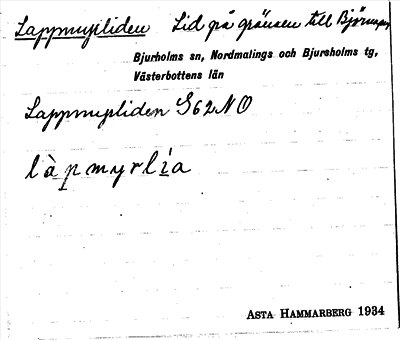 Lappmyrliden Lid på gränsen till Björna sn
Bjurholms sn, Nordmalings och Bjursholms tg,
Västerbottens län
Lappmyrliden G62NO
làpmyrlia
ASTA HAMMARBERG 1934